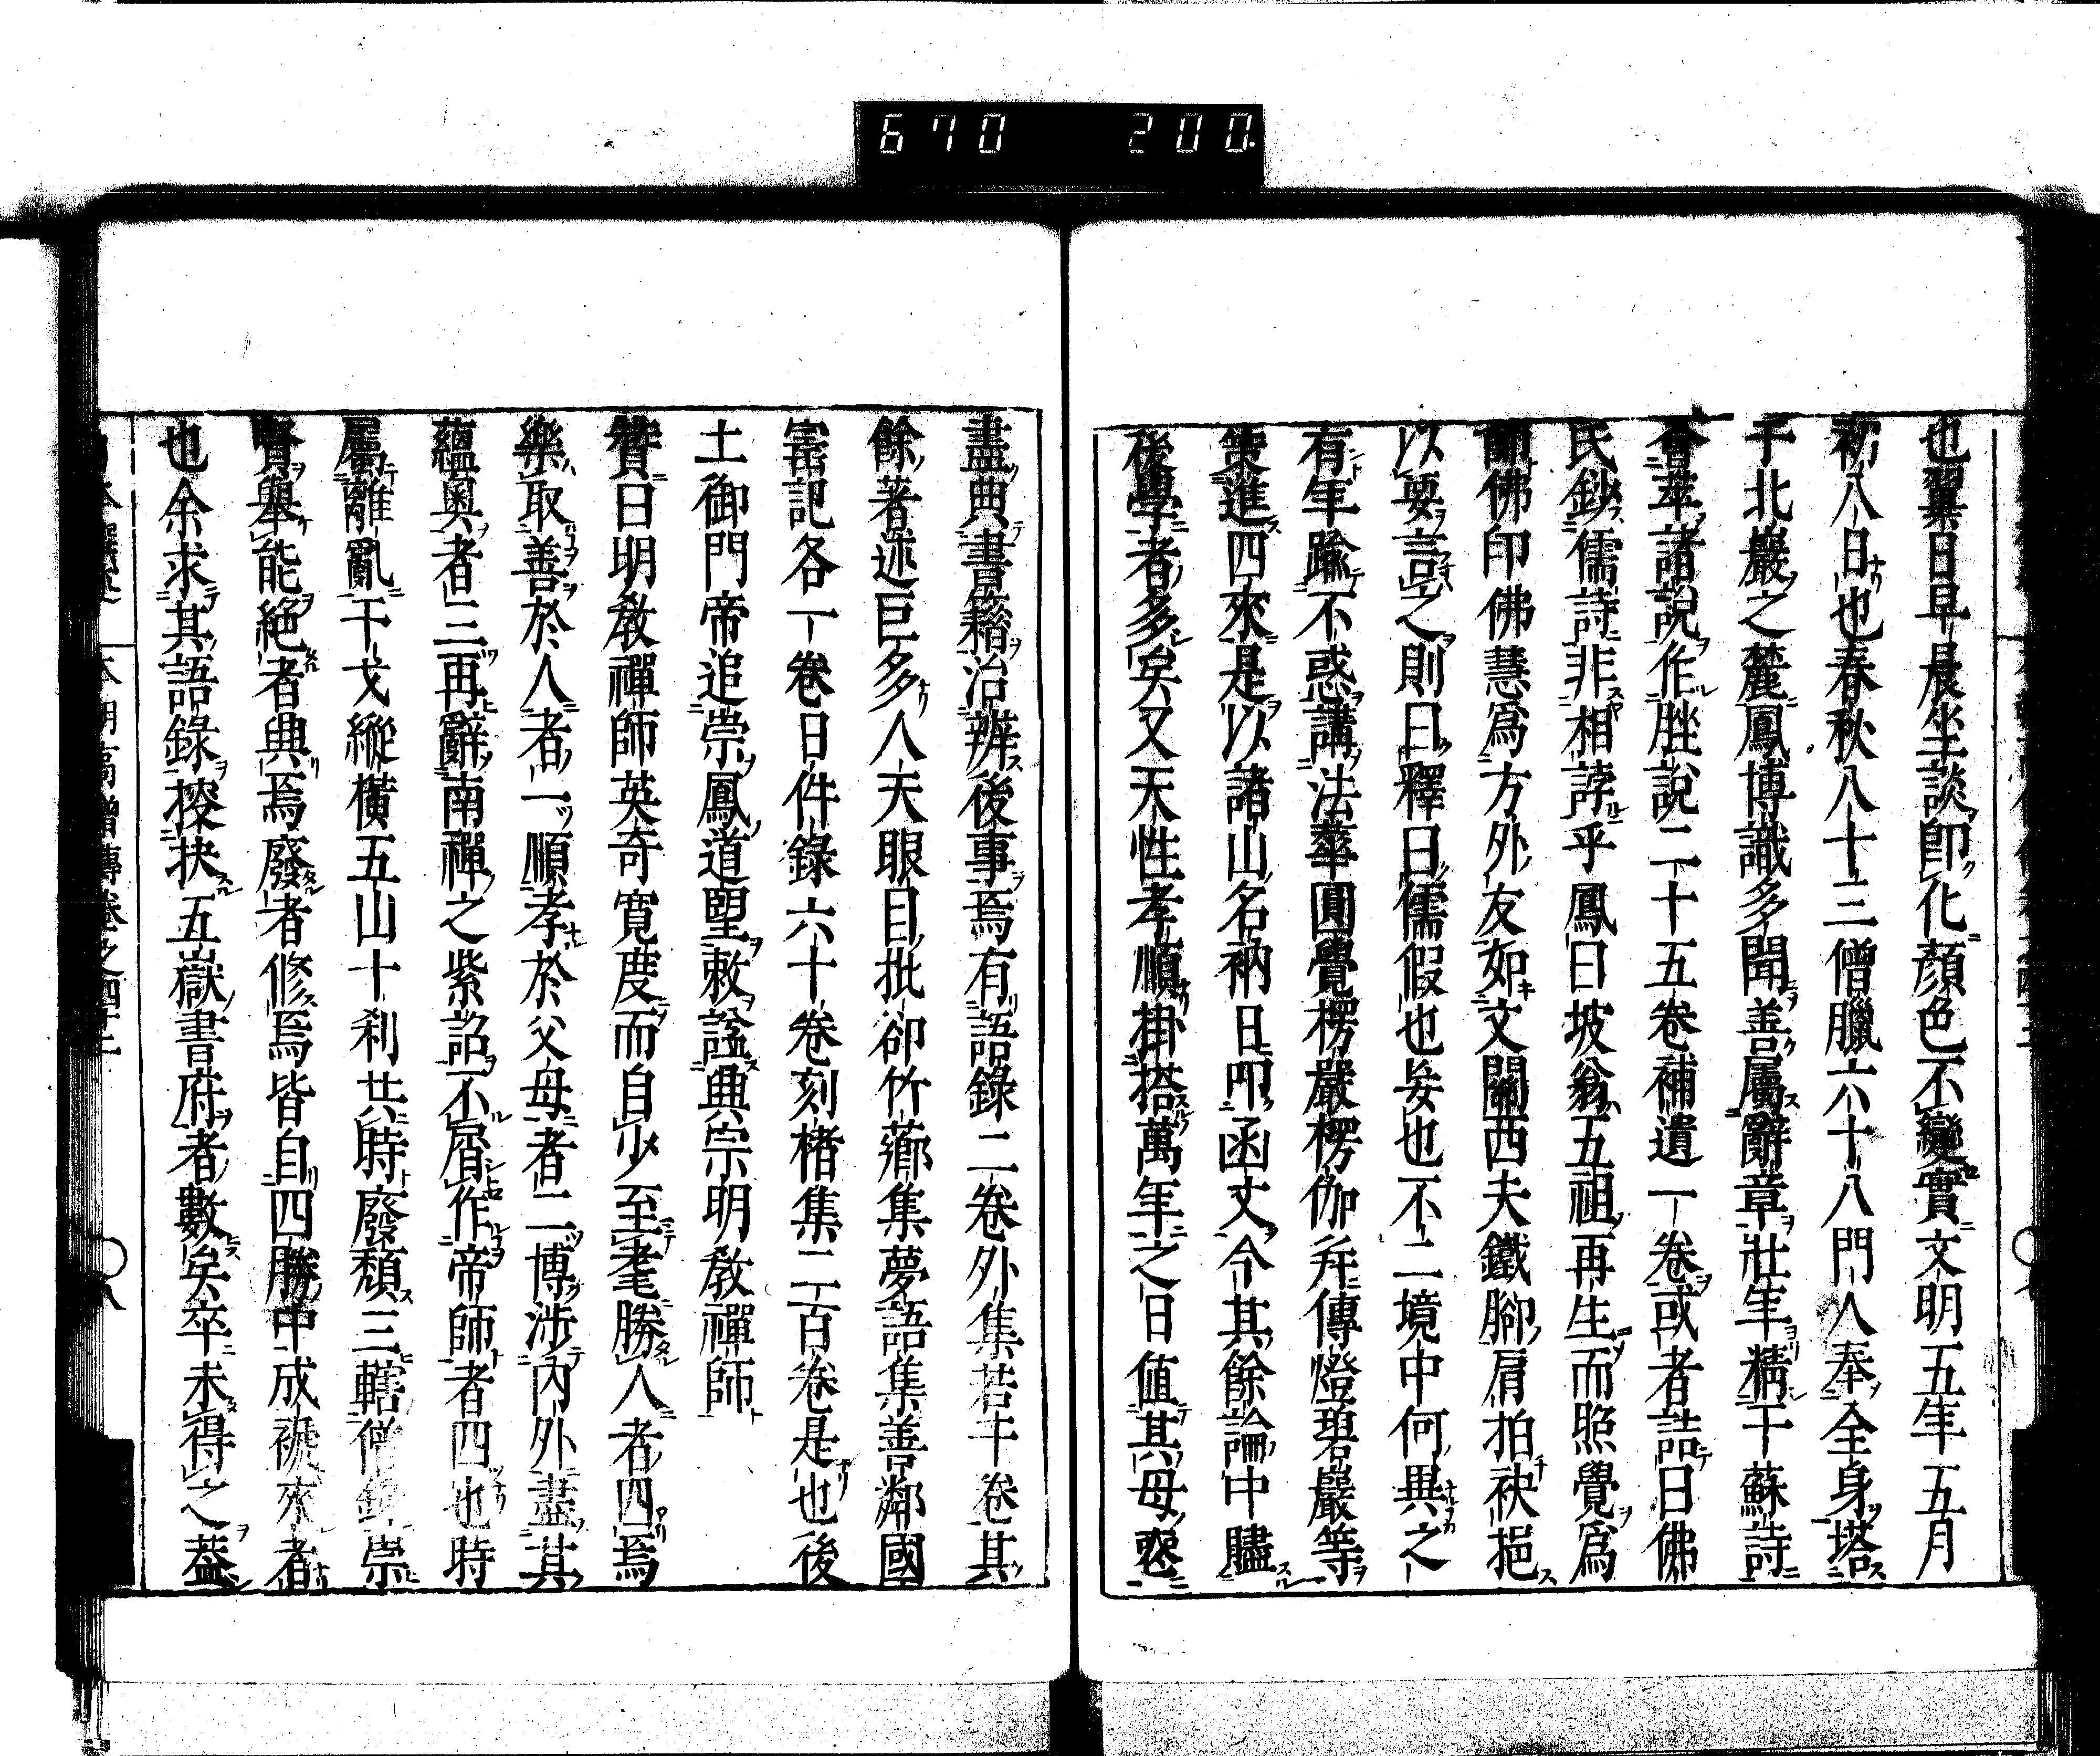 670 200
也翼日早晨坐談即化顏色不變實文明五年五月
初八日也春秋八十三僧臘六十八門人奉全身塔
于北巖之麓鳳博識多聞善屬辭章壯年精于蘇詩
薈萃諸說作脞說二十五卷補遺一卷或者詰曰佛
氏鈔儒詩非相誖乎鳳曰坡翁五祖再生而照覺爲
師佛印佛慧爲方外友如文關西夫鐵腳肩拍袂挹
以要言之則曰釋曰儒假也妄也不二境中何異之
有年踰不惑講法華圓覺楞嚴楞伽幷傳燈碧巖等
策進四來是以諸山名衲日叩函丈今其餘論中贐
後學者多矣又天性孝順掛搭萬年之日値其母喪
盡典書籍治辨後事焉有語錄二卷外集若干卷其
餘著述巨多人天眼目批郤竹薌集夢語集善鄰國
寳記各一卷日件錄六十卷刻楮集二百卷是也後
土御門帝追崇鳳道望敕諡興宗明敎禪師
贊曰明敎禪師英奇寬度而自少至耄勝人者四焉
樂取善於人者一順孝於父母者二博涉內外盡其
蘊奧者三再辭南禪之紫詔不屑作帝師者四也時
屬離亂干戈縱橫五山十刹共時廢頽三轄僧錄崇
賢舉能絕者典焉廢者修焉皆自四勝中成褫來者
也余求其語錄搜抉五嶽書府者數矣卒未得之蓋
本朝高僧傳卷之四十二
八